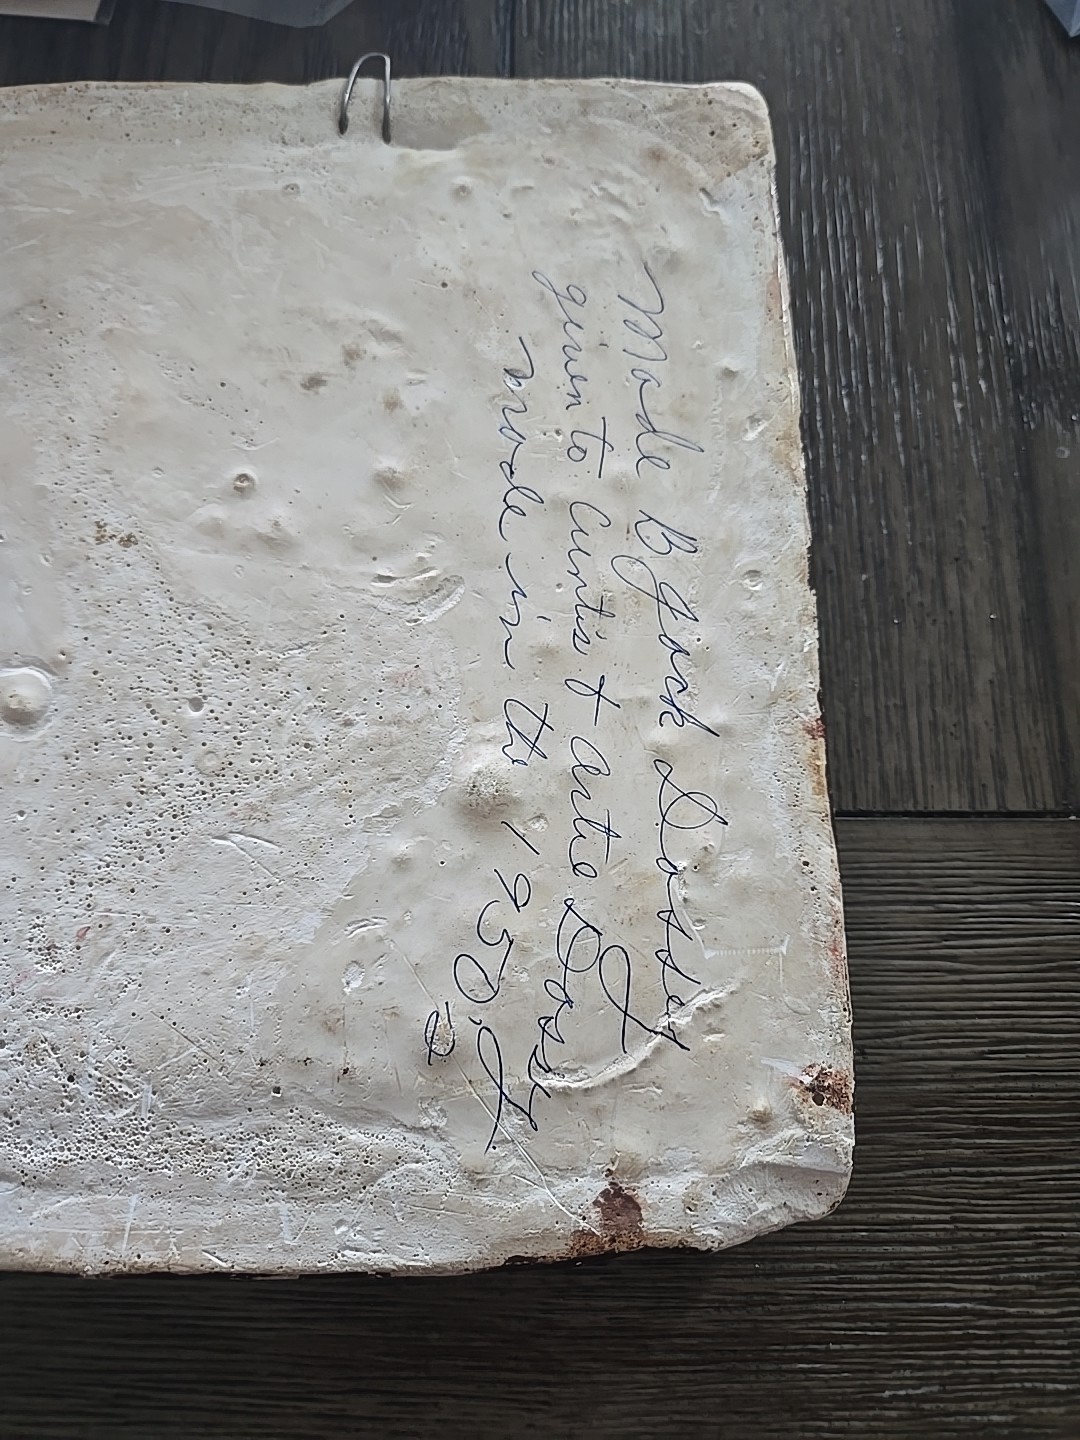 Made By Jack Dossett
given to Curtis & Artie Dossett
made in the 1950,s